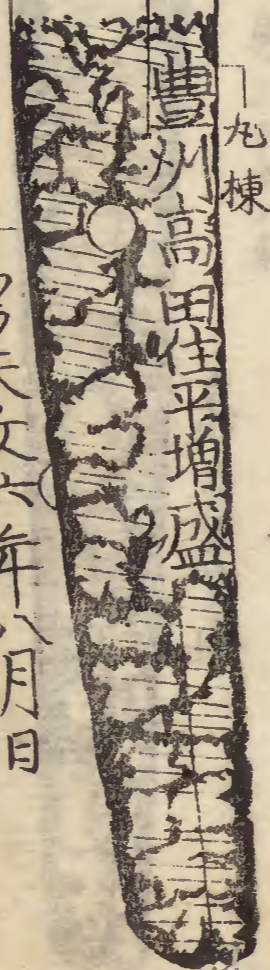 丸棟
豊州高田住平増盛
天文六年八月日